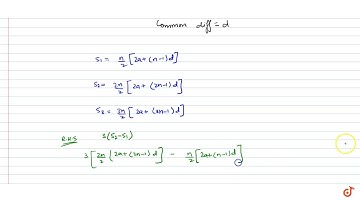 Common diff = d
S₁ = n/2 [2a+(n-1)d]
S₂ = 2n/2 [2a+(2n-1)d]
S₃ = 3n/2 [2a+(3n-1)d]
R.H.S 3(S₂-S₁)
3[2n/2 (2a+(2n-1)d] - n/2 [2a+(n-1)d]